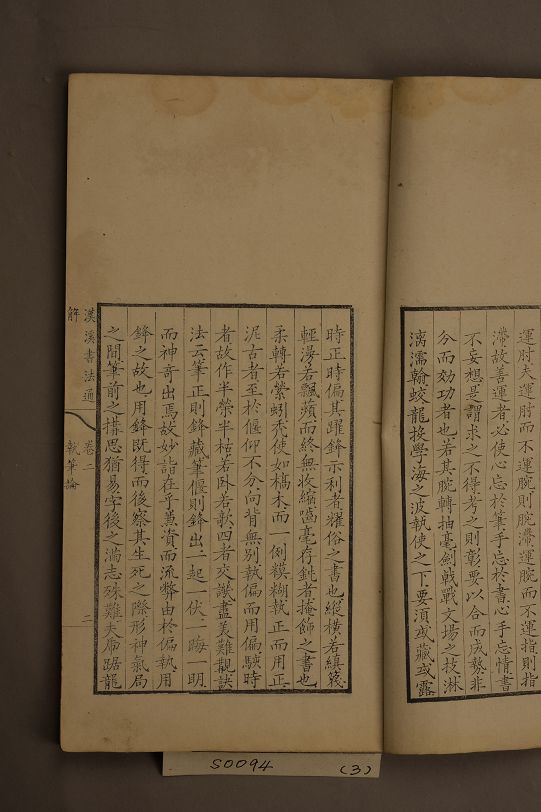 運肘夫運肘而不運腕則腕滯運腕而不運指則指
滯故善運者必使心忘於筆手忘於書心手忘情書
不妄想是謂求之不得考之則彰要以合而成務非
分而効功者也若其腕轉抽毫劍戟戰文場之技淋
漓濡翰蛟龍拔學海之波執使之下要須或藏或露
時正時偏其躍鋒示利者耀俗之書也縱橫若縝箋
輕漫若飄蘋而終無收縮嚙毫存銳者掩飾之書也
柔轉若縈蚓禿使如槁木而一例糢糊執正而用正
泥古者至於偃仰不分向背無別執偏而用偏駭時
者故作半榮半枯若臥若欹四者交譏盡美難觀訣
法云筆正則鋒藏筆偃則鋒出一起一伏一晦一明
而神奇出焉故妙詣在乎兼資而流弊由於偏執用
鋒之故也用鋒既得而後察其生死之際形神氣局
之間筆前之搆思猶易字後之滿志殊難夫虎踞龍
漢溪書法通
解
卷二
執筆論
二
S0094 (3)